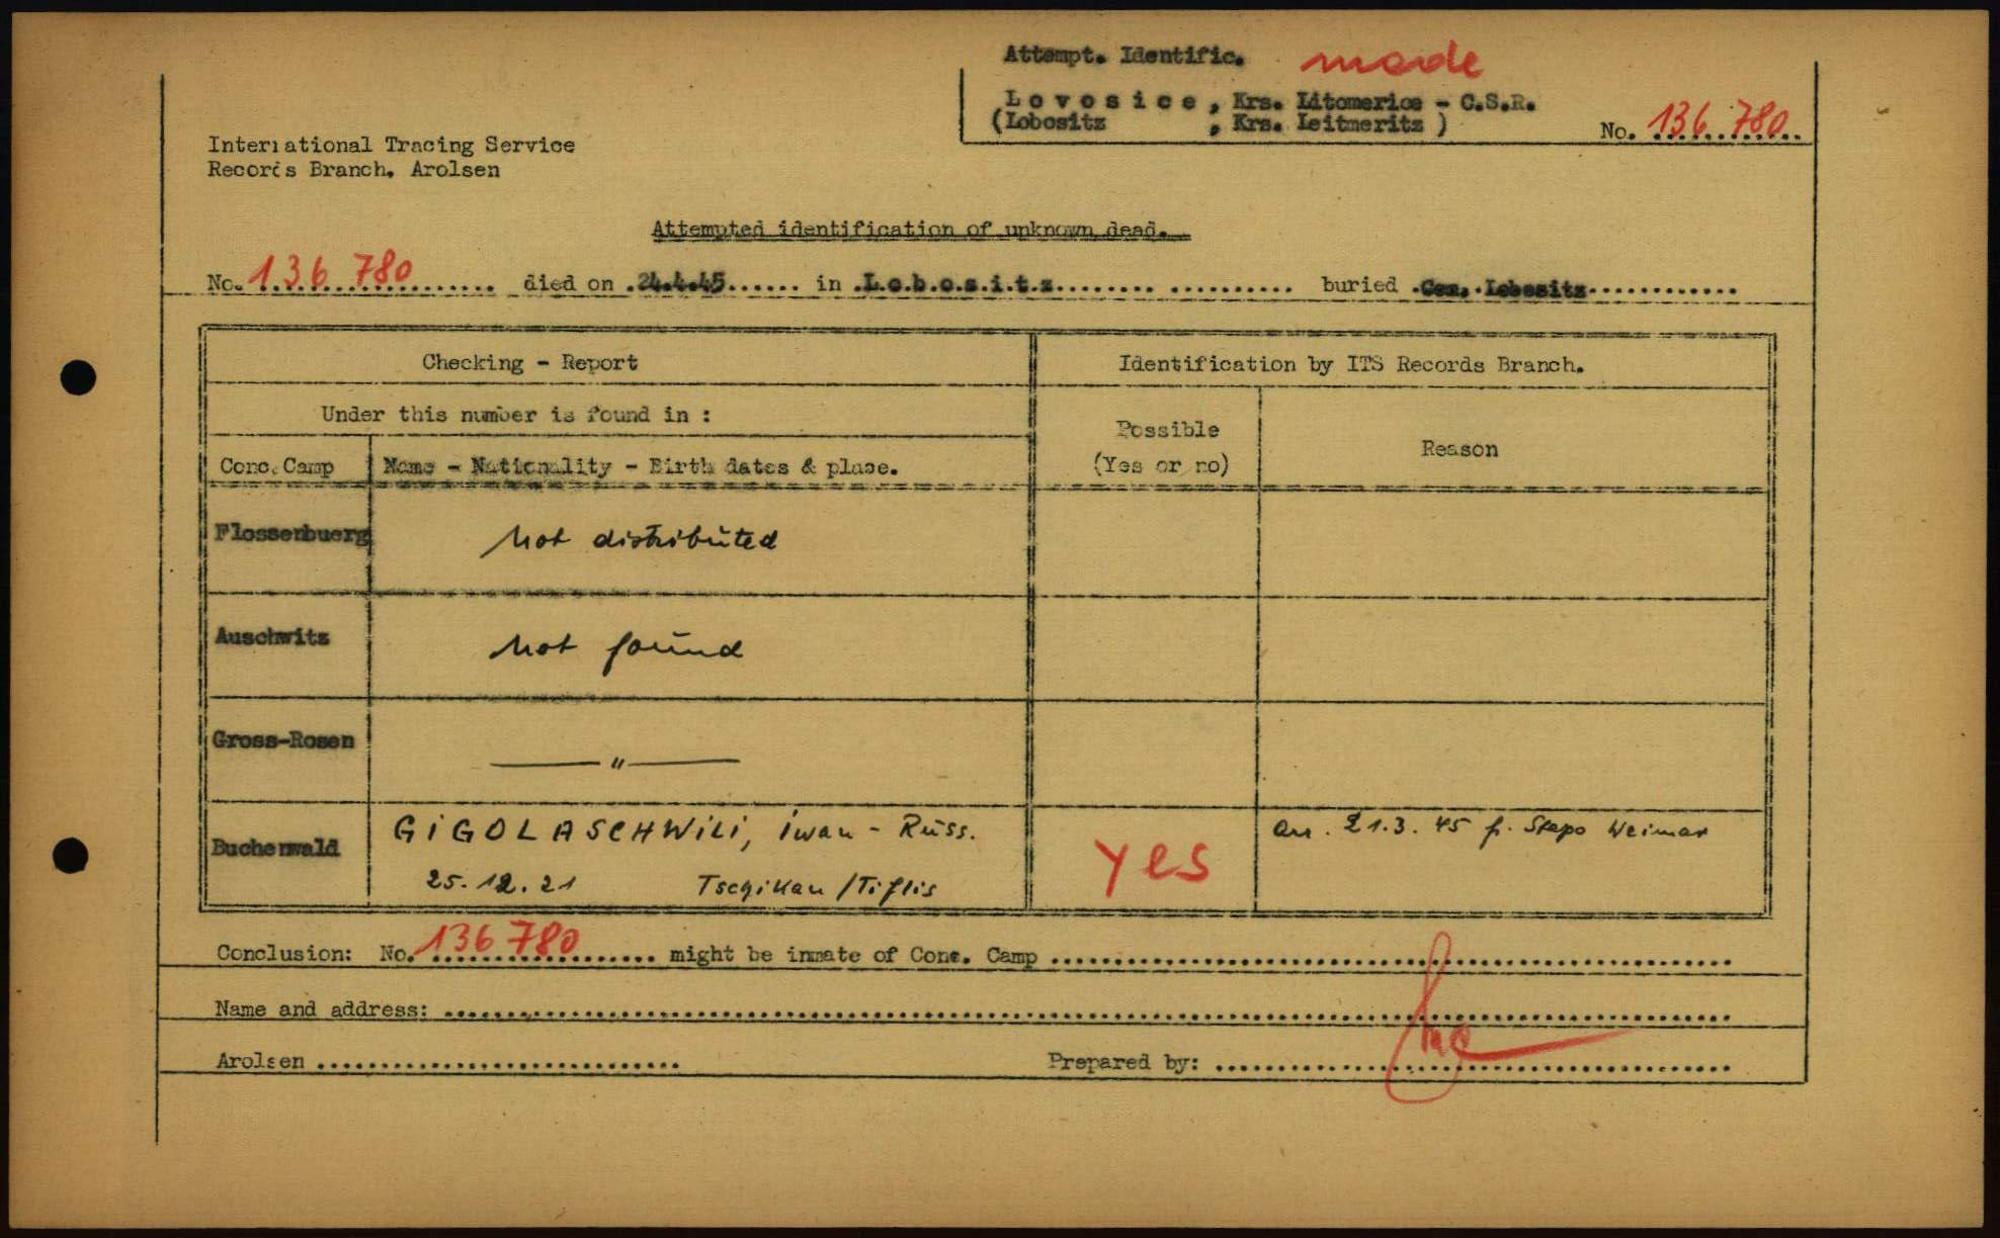 Attempt. Identific. made
L o v o s i c e , Krs. Litomerice - C.S.R.
(Lobositz , Krs. Leitmeritz ) No. 136 780
International Tracing Service
Records Branch. Arolsen
Attempted identification of unknown dead.
No. 136 780 died on .24.4.45...... in .L.o.b.o.s.i.t.z......... .......... buried .Cem. Lobositz............
Checking - Report Identification by ITS Records Branch.
Under this number is found in :
Possible
(Yes or no)
Reason
Conc. Camp Name - Nationality - Birth dates & place.
Flossenbuerg not distributed
Auschwitz not found
Gross-Rosen —— " ——
Buchenwald GIGOLASCHWILI, Iwan - Russ.
25.12.21 /Tiflis
yes
arr. 21.3.45 f. Stapo Weimar
Conclusion: No. 136 780 might be inmate of Conc. Camp ..........
Name and address: ..........
Arolsen .......... Prepared by: ..........